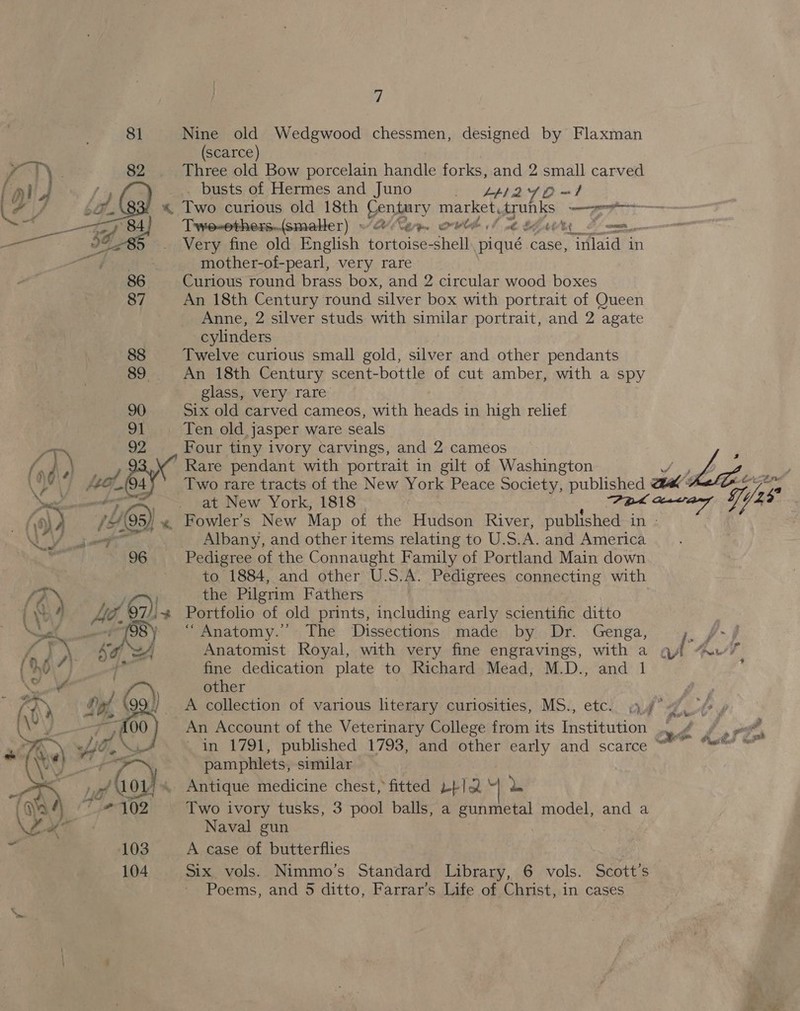 7
81 Nine old Wedgwood chessmen, designed by Flaxman
(scarce)
82 Three old Bow porcelain handle forks, and 2 small carved
busts of Hermes and Juno
83 Two curious old 18th Century market trunks
84 Two others (smaller)
85 Very fine old English tortoise-shell piqué case, inlaid in
mother-of-pearl, very rare
86 Curious round brass box, and 2 circular wood boxes
87 An 18th Century round silver box with portrait of Queen
Anne, 2 silver studs with similar portrait, and 2 agate
cylinders
88 Twelve curious small gold, silver and other pendants
89 An 18th Century scent-bottle of cut amber, with a spy
glass, very rare
90 Six old carved cameos, with heads in high relief
91 Ten old jasper ware seals
92 Four tiny ivory carvings, and 2 cameos
93 Rare pendant with portrait in gilt of Washington
94 Two rare tracts of the New York Peace Society, published
at New York, 1818
95 Fowler's New Map of the Hudson River, published in
Albany, and other items relating to U.S.A. and America
96 Pedigree of the Connaught Family of Portland Main down
to 1884, and other U.S.A. Pedigrees connecting with
the Pilgrim Fathers
97 Portfolio of old prints, including early scientific ditto
98 “Anatomy.” The Dissections made by Dr. Genga,
Anatomist Royal, with very fine engravings, with a
fine dedication plate to Richard Mead, M.D., and 1
other
99 A collection of various literary curiosities, MS., etc.
100 An Account of the Veterinary College from its Institution
in 1791, published 1793, and other early and scarce
pamphlets, similar
101 Antique medicine chest, fitted
102 Two ivory tusks, 3 pool balls, a gunmetal model, and a
Naval gun
103 A case of butterflies
104 Six vols. Nimmo's Standard Library, 6 vols. Scott's
Poems, and 5 ditto, Farrar's Life of Christ, in cases